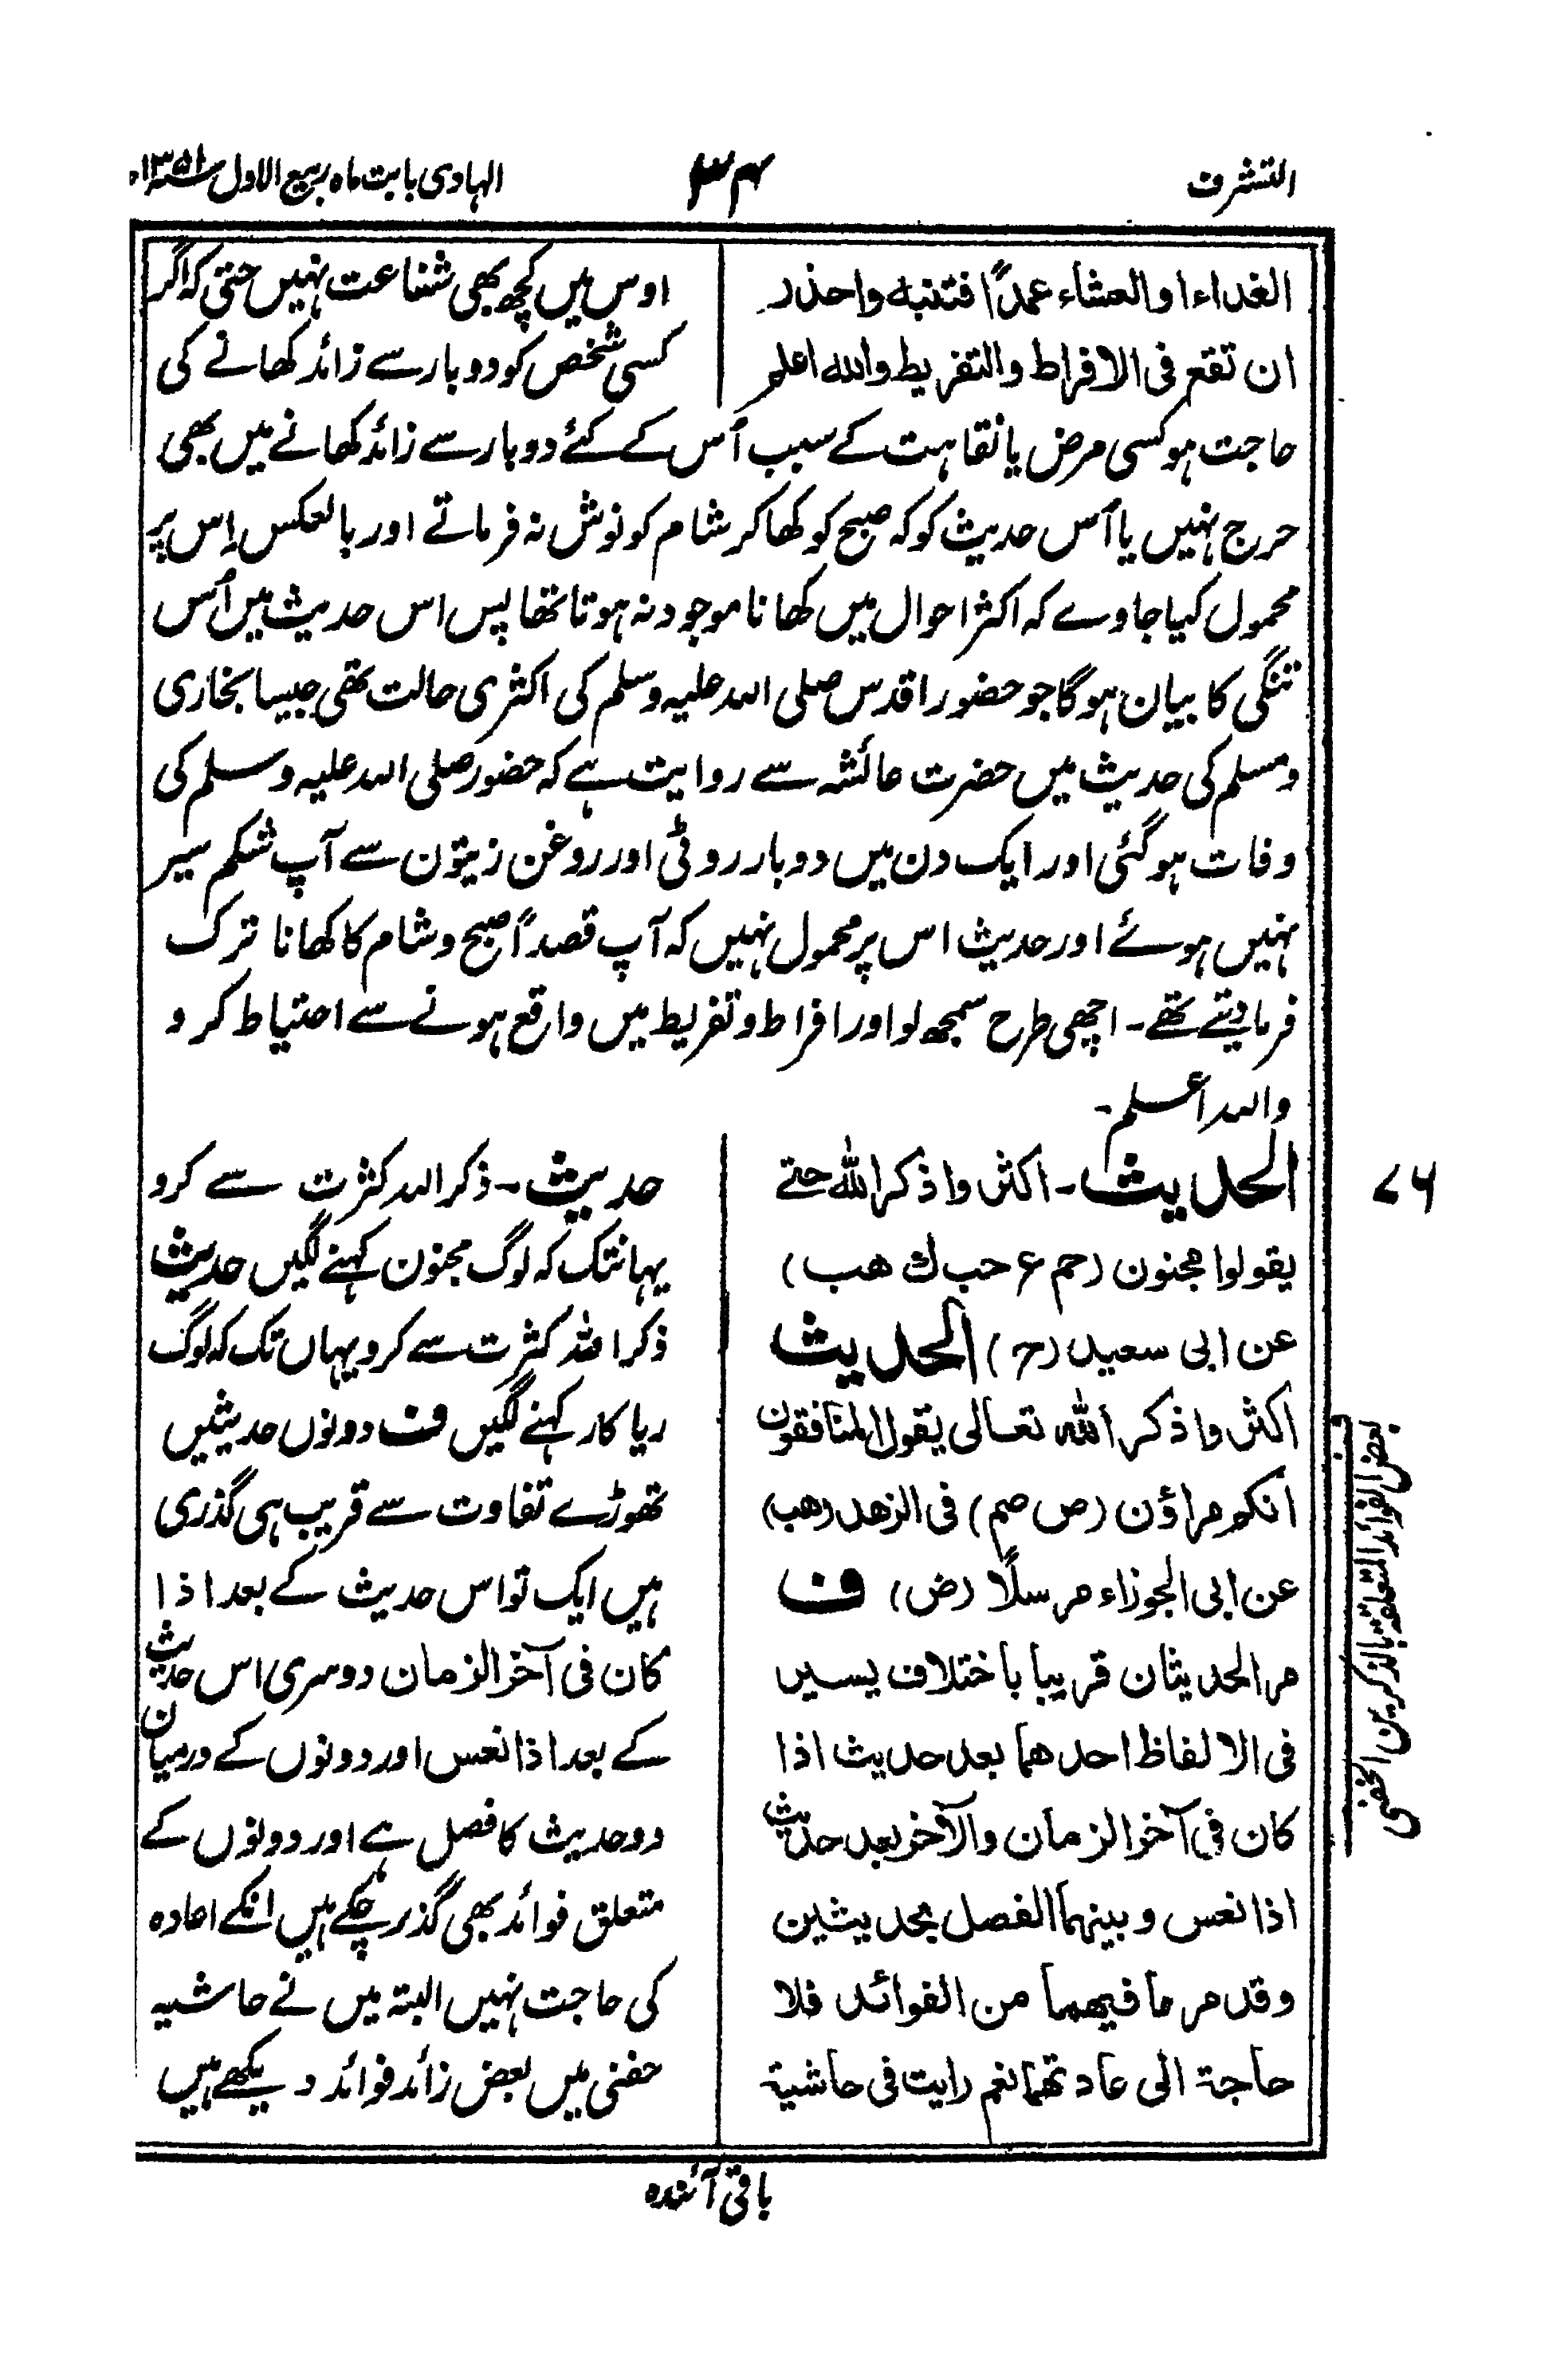 التشرف
۳۴
الہادی بابت ماہ ربیع الاول سنہ ۱۳۵۱ھ
الغداء او العشاء عمداً فتنبہ واحذر
ان تقع فی الافراط والتفریط واللہ اعلم
اوس میں کچھ بھی شناعت نہیں حتی کہ اگر
کسی شخص کو دوبار سے زائد کھانے کی
حاجت ہو کسی مرض یا نقاہت کے سبب اُس کے لئے دوبار سے زائد کھانے میں بھی
حرج نہیں یا اُس حدیث کو کہ صبح کو کھا کر شام کو نوش نہ فرماتے اور بالعکس اِس پر
محمول کیا جاوے کہ اکثر احوال میں کھانا موجود نہ ہوتا تھا پس اس حدیث میں اُس
تنگی کا بیان ہوگا جو حضور اقدس صلی اللہ علیہ وسلم کی اکثری حالت تھی جیسا بخاری
ومسلم کی حدیث میں حضرت عائشہ سے روایت ہے کہ حضور صلی اللہ علیہ وسلم کی
وفات ہوگئی اور ایک دن میں دوبار روٹی اور روغن زیتون سے آپ شکم سیر
نہیں ہوئے اور حدیث اس پر محمول نہیں کہ آپ قصداً صبح وشام کا کھانا ترک
فرمادیتے تھے۔ اچھی طرح سمجھ لو اور افراط وتفریط میں واقع ہونے سے احتیاط کرو
واللہ اعلم۔
الحدیث۔ اکثروا ذکر اللہ حتے
یقولوا مجنون (حم ع حب ك هب)
عن ابی سعید (ح) الحدیث
اکثروا ذکر اللہ تعالی یقول المنافقون
انکم مراؤن (ص صم) فی الزھد (ھب)
عن ابی الجوزاء مرسلًا (ض) ف
مر الحدیثان قریبا باختلاف یسیر
فی الالفاظ احدھما بعد حدیث اذا
کان فی آخر الزمان والآخر بعد حدیث
اذا نعس وبینہما الفصل بحدیثین
وقد مر ما فیھما من الفوائد فلا
حاجۃ الی عادتھما نعم رایت فی حاشیۃ
حدیث۔ ذکر اللہ کثرت سے کرو
یہانتک کہ لوگ مجنون کہنے لگیں حدیث
ذکر اللہ کثرت سے کرو یہاں تک کہ لوگ
ریاکار کہنے لگیں ف دونوں حدیثیں
تھوڑے تفاوت سے قریب ہی گذری
ہیں ایک تو اس حدیث کے بعد اذا
کان فی آخر الزمان دوسری اس حدیث
کے بعد اذا نعس اور دونوں کے درمیان
دو حدیث کا فصل ہے اور دونوں کے
متعلق فوائد بھی گذر چکے ہیں انکے اعادہ
کی حاجت نہیں البتہ میں نے حاشیہ
حفنی میں بعض زائد فوائد دیکھے ہیں
۷۶
ف بعض الفوائد المتعلقۃ بالذکر من الحفنی
باقی آئندہ